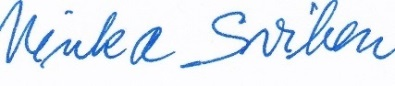 Ninka Sviben